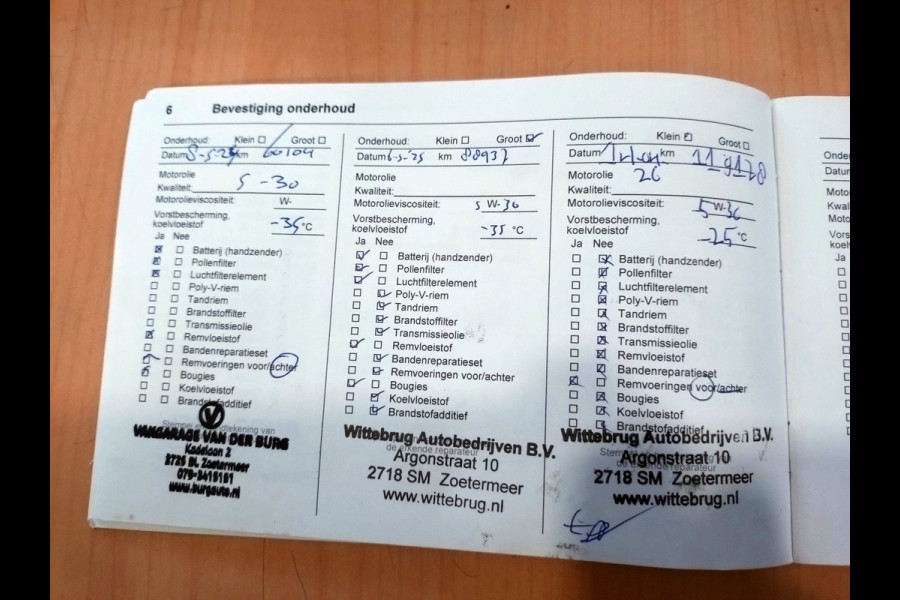 6 Bevestiging onderhoud
Onderhoud: Klein ☐ Groot ☐
Datum 8-5-24 km 60104
Motorolie
Kwaliteit: 5-30
Motorolieviscositeit: W-
Vorstbescherming,
koelvloeistof -35 °C
Ja Nee
Batterij (handzender)
Pollenfilter
Luchtfilterelement
Poly-V-riem
Tandriem
Brandstoffilter
Transmissieolie
Remvloeistof
Bandenreparatieset
Remvoeringen voor/achter
Bougies
Koelvloeistof
Brandstofadditief
VAKGARAGE VAN DER BURG
2725 BL Zoetermeer
079-3415151
www.burgauto.nl
Onderhoud: Klein ☐ Groot ☑
Datum 6-5-'25 km 88937
Motorolie
Kwaliteit:
Motorolieviscositeit: 5 W-30
Vorstbescherming,
koelvloeistof -35 °C
Ja Nee
Batterij (handzender)
Pollenfilter
Luchtfilterelement
Poly-V-riem
Tandriem
Brandstoffilter
Transmissieolie
Remvloeistof
Bandenreparatieset
Remvoeringen voor/achter
Bougies
Koelvloeistof
Brandstofadditief
Wittebrug Autobedrijven B.V.
de erkende reparateur
Argonstraat 10
2718 SM Zoetermeer
www.wittebrug.nl
Onderhoud: Klein ☑ Groot ☐
Datum km
Motorolie 26
Kwaliteit:
Motorolieviscositeit: 5 W-30
Vorstbescherming,
koelvloeistof -25 °C
Ja Nee
Batterij (handzender)
Pollenfilter
Luchtfilterelement
Poly-V-riem
Tandriem
Brandstoffilter
Transmissieolie
Remvloeistof
Bandenreparatieset
Remvoeringen voor/achter
Bougies
Koelvloeistof
Brandstofadditief
Wittebrug Autobedrijven B.V.
Argonstraat 10
2718 SM Zoetermeer
www.wittebrug.nl